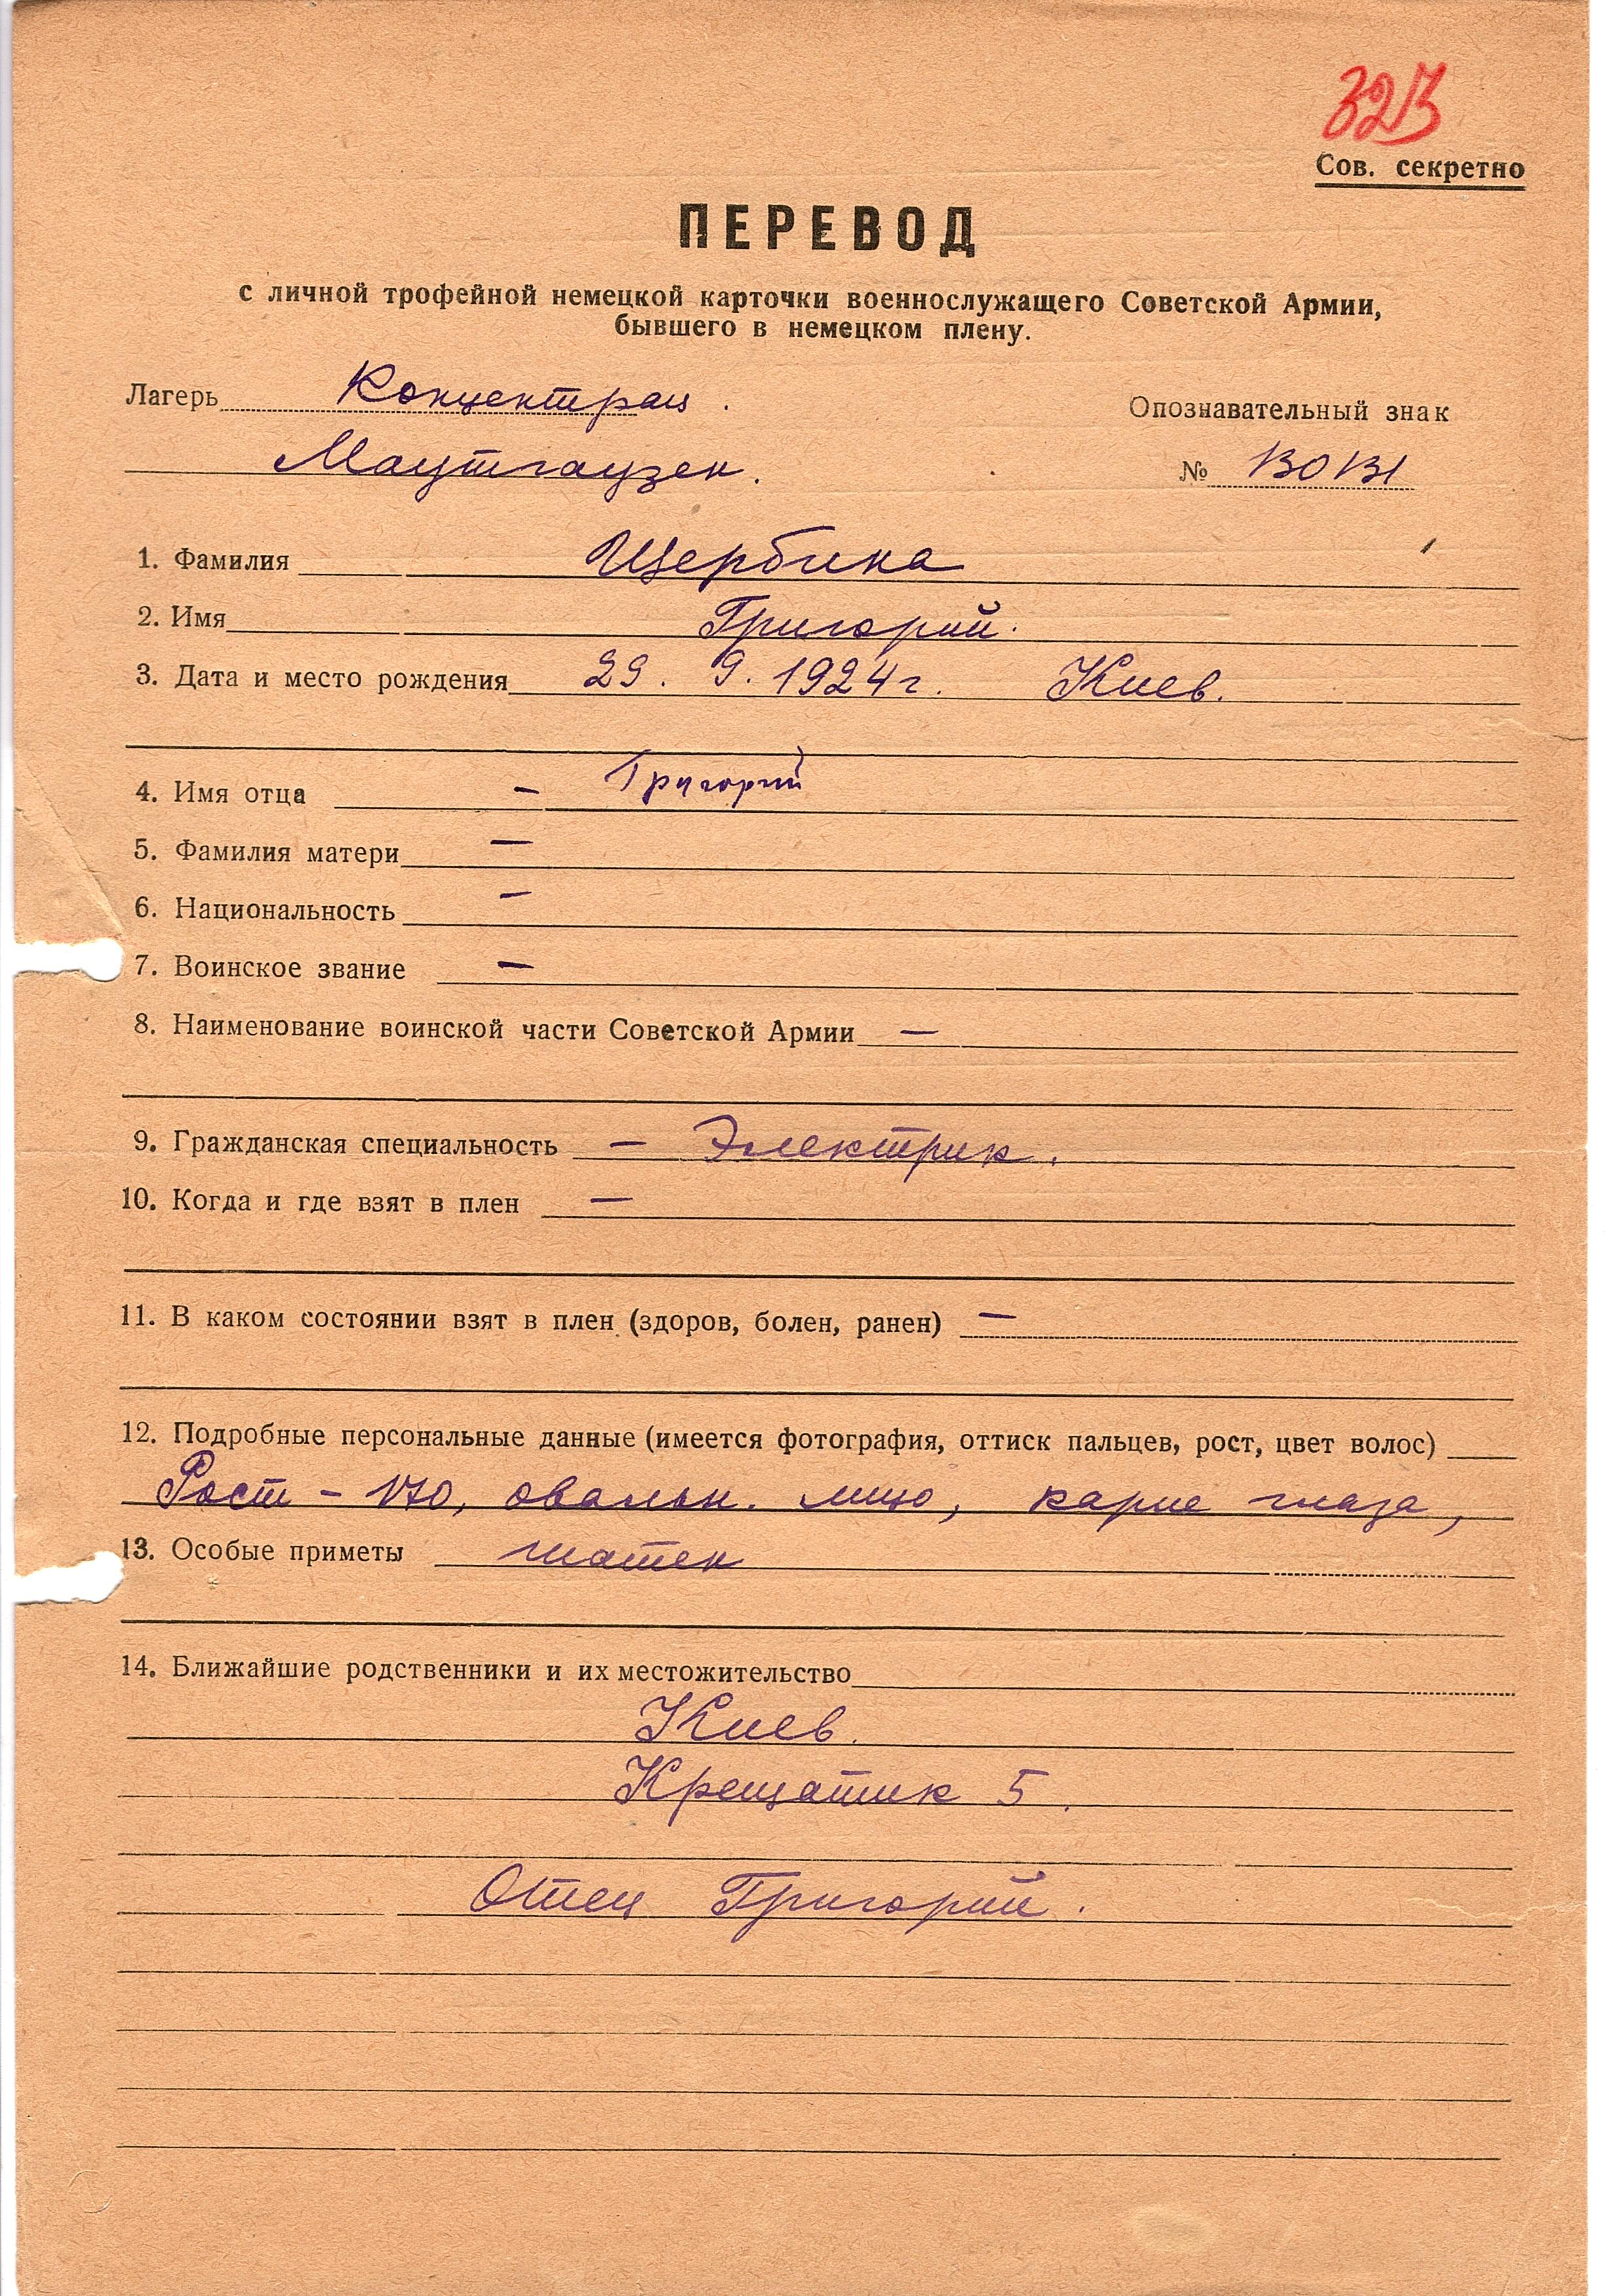 323
Сов. секретно
ПЕРЕВОД
с личной трофейной немецкой карточки военнослужащего Советской Армии,
бывшего в немецком плену.
Лагерь Концентрац.
Опознавательный знак
Маутгаузен.
№ 130131
1. Фамилия Щербина
2. Имя Григорий.
3. Дата и место рождения 29. 9. 1924 г. Киев.
4. Имя отца – Григорий
5. Фамилия матери –
6. Национальность –
7. Воинское звание –
8. Наименование воинской части Советской Армии –
9. Гражданская специальность – Электрик.
10. Когда и где взят в плен –
11. В каком состоянии взят в плен (здоров, болен, ранен) –
12. Подробные персональные данные (имеется фотография, оттиск пальцев, рост, цвет волос)
Рост – 170, овальн. лицо, карие глаза,
13. Особые приметы шатен
14. Ближайшие родственники и их местожительство
Киев.
Крещатик 5.
Отец Григорий.